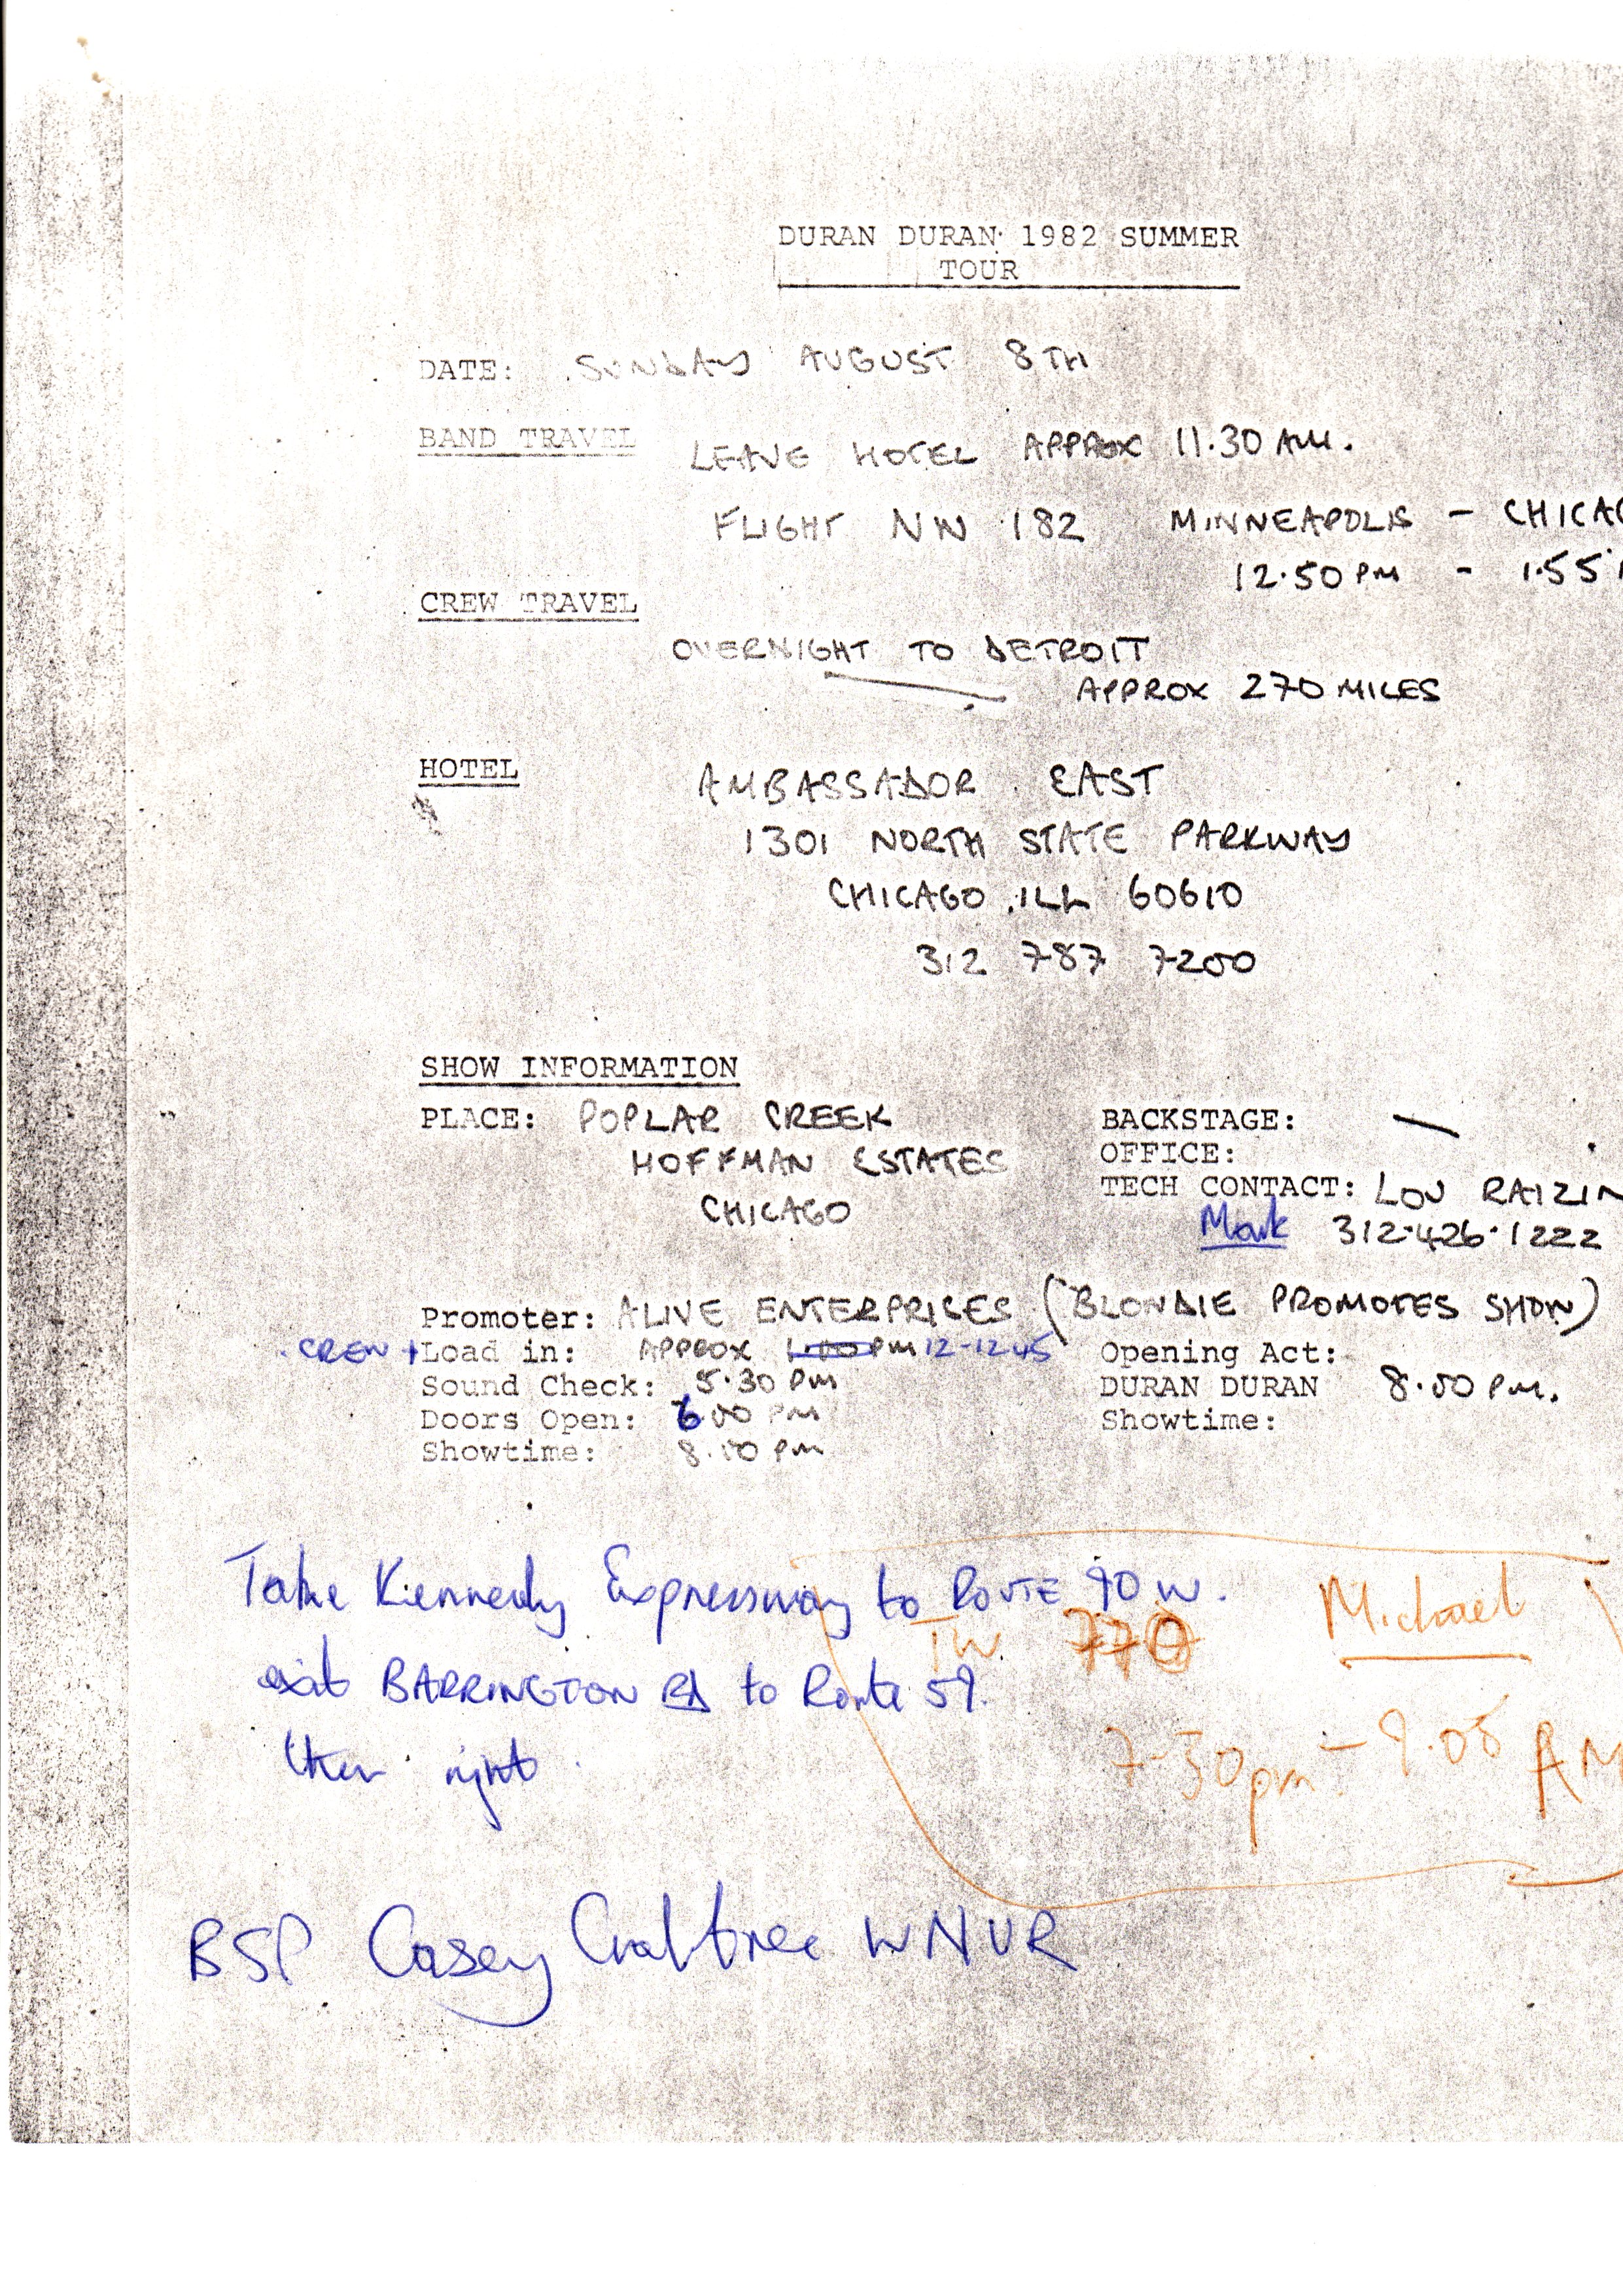 DURAN DURAN 1982 SUMMER
TOUR
DATE: SUNDAY AUGUST 8TH
BAND TRAVEL LEAVE HOTEL APPROX 11.30 AM.
FLIGHT NW 182 MINNEAPOLIS - CHICAG
12.50 PM - 1.55
CREW TRAVEL
OVERNIGHT TO DETROIT
APPROX 270 MILES
HOTEL AMBASSADOR EAST
1301 NORTH STATE PARKWAY
CHICAGO ILL 60610
312 787 7200
SHOW INFORMATION
PLACE: POPLAR CREEK
HOFFMAN ESTATES
CHICAGO
BACKSTAGE: —
OFFICE:
TECH CONTACT: LOU RAIZIN
Mark 312.426.1222
Promoter: ALIVE ENTERPRISES (BLONDIE PROMOTES SHOW)
CREW + Load in: APPROX 1.00 PM 12-12.45
Sound Check: 5.30 PM
Doors Open: 6.00 PM
Showtime: 8.00 PM
Opening Act:
DURAN DURAN 8.00 P.M.
Showtime:
Take Kennedy Expressway to ROUTE 90 W.
exit BARRINGTON RD to Route 59.
then right.
Michael
TW 770
7-30pm - 9.05 AM
BSP Casey Crabtree WNUR